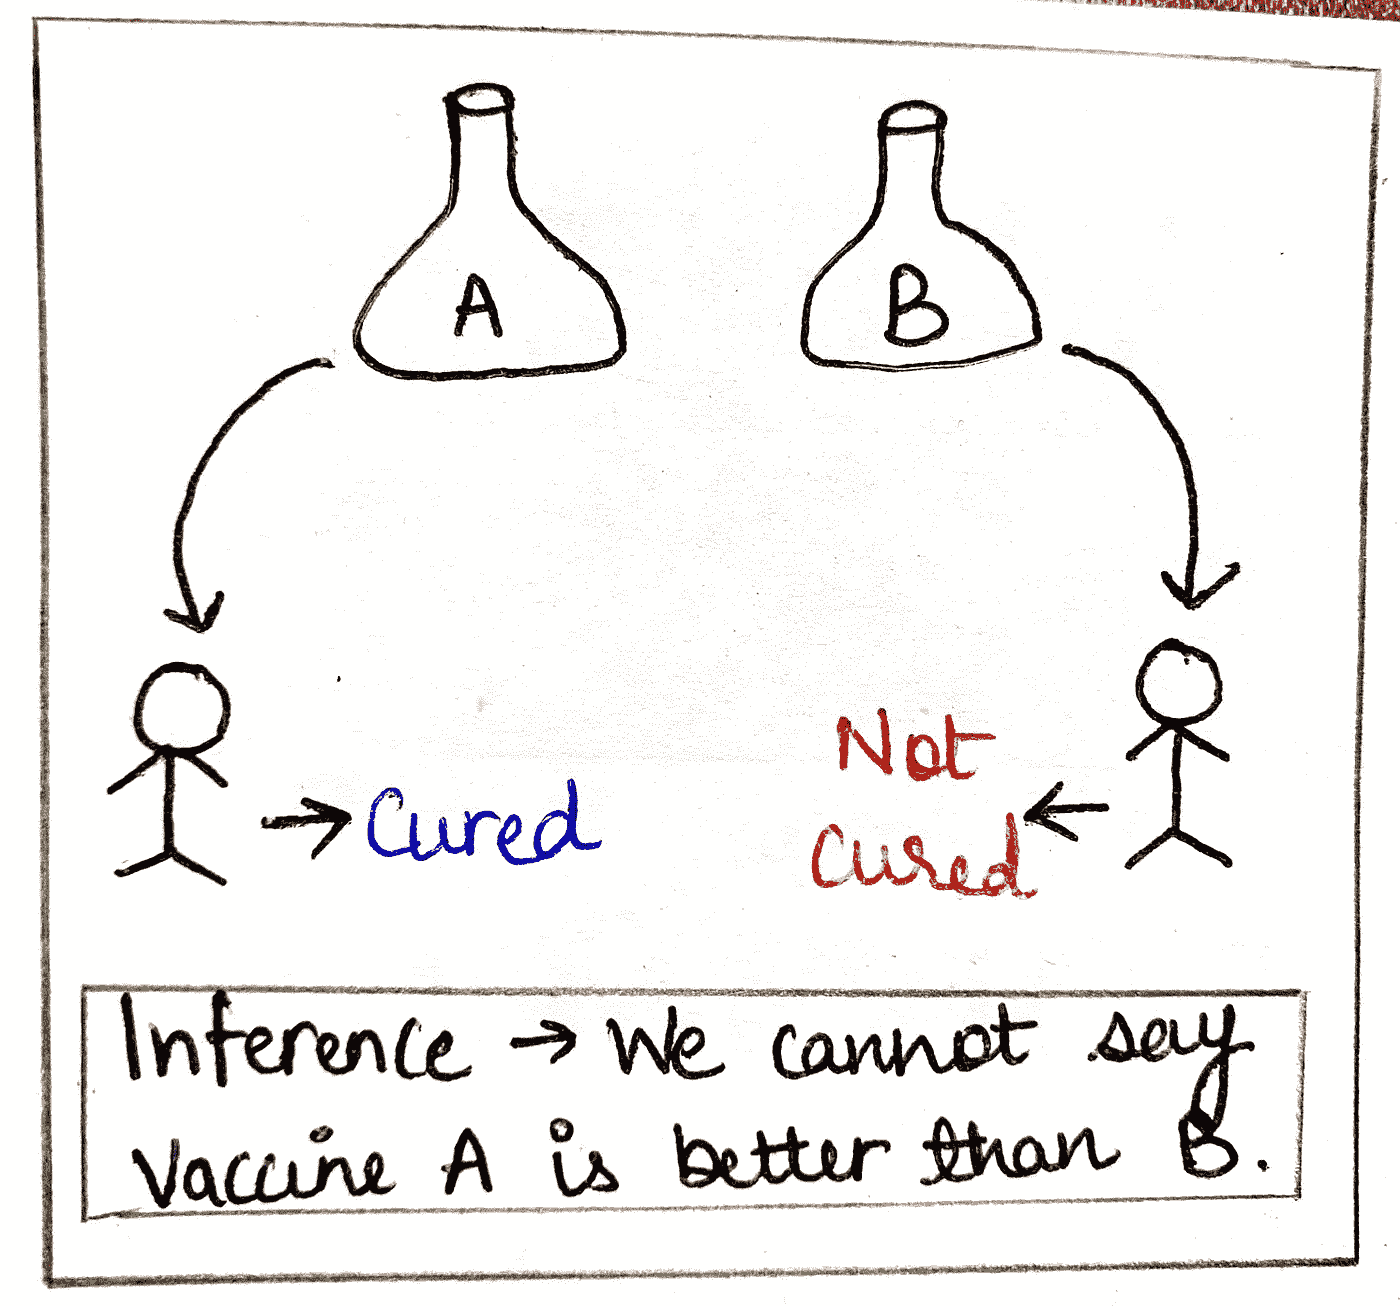 A
B
Cured
Not
Cured
Inference → We cannot say
Vaccine A is better than B.